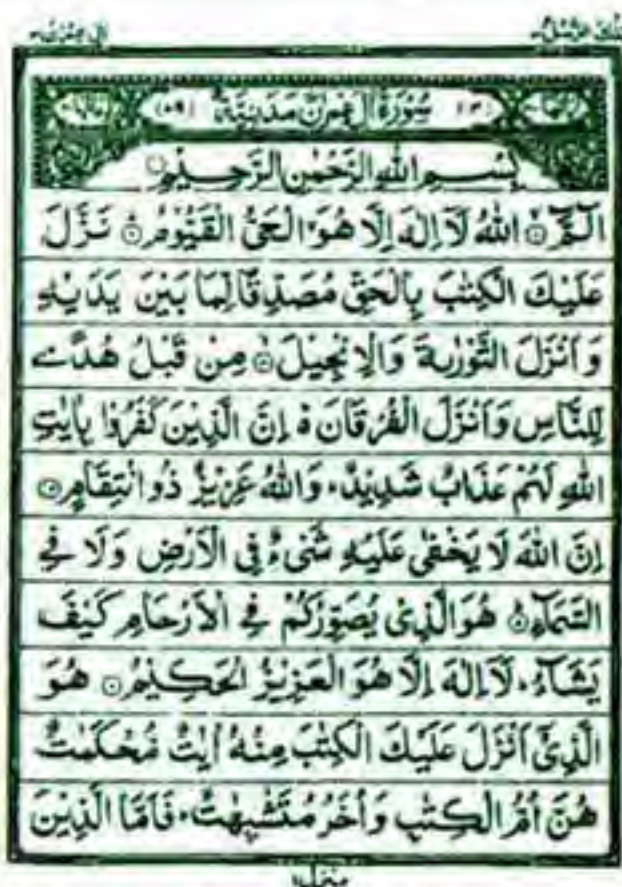 تلك الرسل ٣ ال عمرن ٣
(٣) سُوْرَةُ اٰلِ عِمْرٰنَ مَدَنِيَّةٌ (٨٩)
بِسْمِ اللهِ الرَّحْمٰنِ الرَّحِيْمِ
الٓمّٓ ۝ اللهُ لَاۤ اِلٰهَ اِلَّا هُوَ الْحَىُّ الْقَيُّوْمُ ۝ نَزَّلَ
عَلَيْكَ الْكِتٰبَ بِالْحَقِّ مُصَدِّقًا لِّمَا بَيْنَ يَدَيْهِ
وَاَنْزَلَ التَّوْرٰىةَ وَالْاِنْجِيْلَ ۝ مِنْ قَبْلُ هُدًى
لِّلنَّاسِ وَاَنْزَلَ الْفُرْقَانَ ۬ؕ اِنَّ الَّذِيْنَ كَفَرُوْا بِاٰيٰتِ
اللهِ لَهُمْ عَذَابٌ شَدِيْدٌ ؕ وَاللهُ عَزِيْزٌ ذُو انْتِقَامٍ ۝
اِنَّ اللهَ لَا يَخْفٰى عَلَيْهِ شَىْءٌ فِى الْاَرْضِ وَلَا فِى
السَّمَآءِ ۝ هُوَ الَّذِىْ يُصَوِّرُكُمْ فِى الْاَرْحَامِ كَيْفَ
يَشَآءُ ؕ لَاۤ اِلٰهَ اِلَّا هُوَ الْعَزِيْزُ الْحَكِيْمُ ۝ هُوَ
الَّذِىْۤ اَنْزَلَ عَلَيْكَ الْكِتٰبَ مِنْهُ اٰيٰتٌ مُّحْكَمٰتٌ
هُنَّ اُمُّ الْكِتٰبِ وَاُخَرُ مُتَشٰبِهٰتٌ ؕ فَاَمَّا الَّذِيْنَ
منزل١